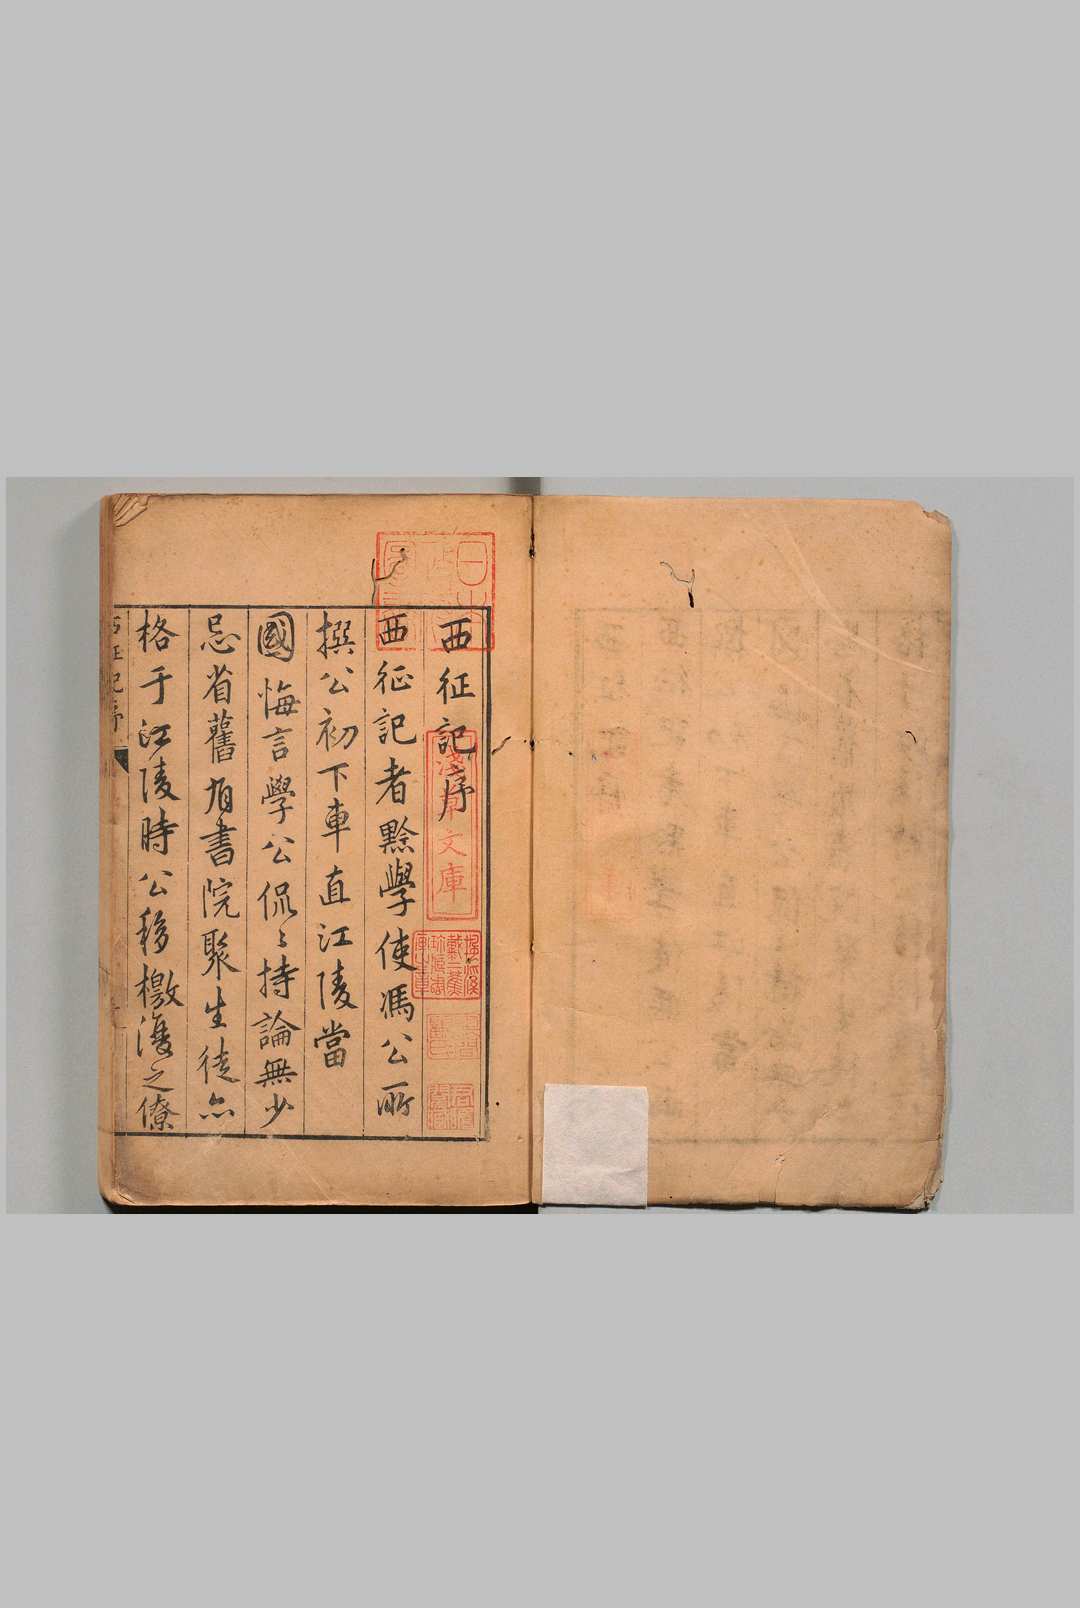 西征記序
西征記者黔學使馮公所
撰公初下車直江陵當
國悔言學公侃〻持論無少
忌省舊有書院聚生徒亦
格于江陵時公移檄復之僚
西征記序
淺草文庫